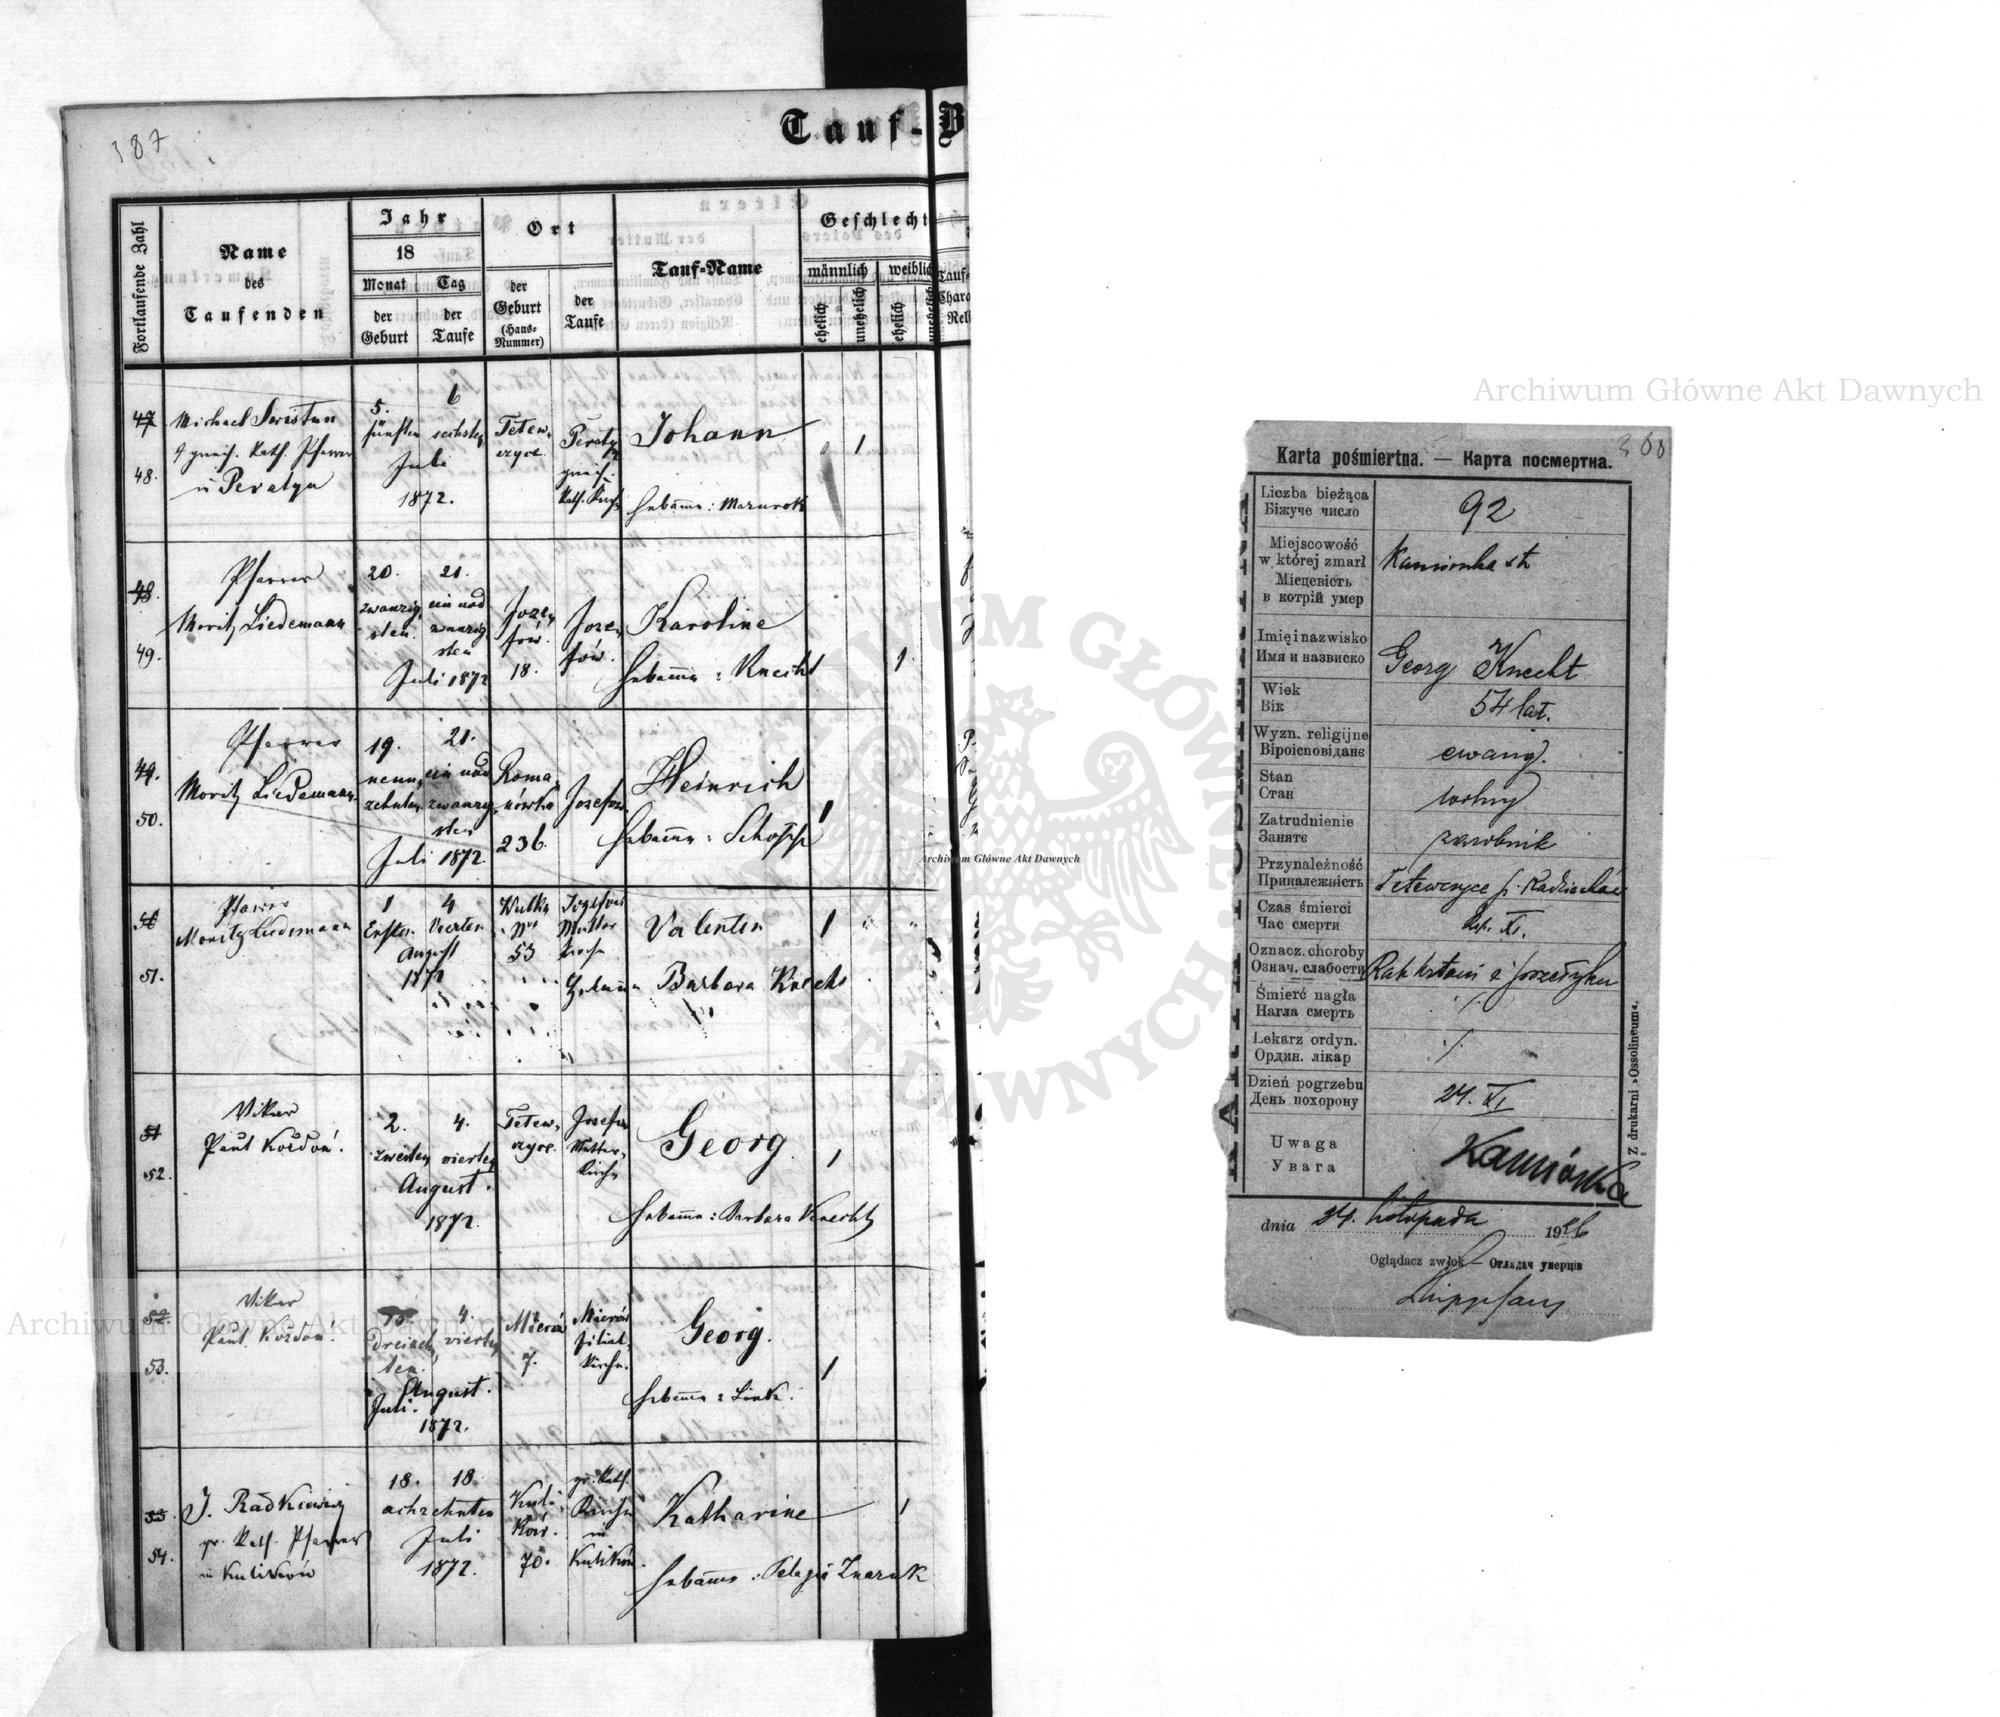 187
Tauf-B
Fortlaufende Zahl
Name
des
Taufenden
Jahr
18
Monat
Tag
der
Geburt
der
Taufe
Ort
der
Geburt
(Haus-
Nummer)
der
Taufe
Tauf-Name
Geschlecht
männlich
weiblich
ehelich
unehelich
ehelich
unehelich
47
48.
Michael Swistun
Pfarrer
in Peratyn
5.
fünften
6
sechsten
Juli
1872.
Tetew-
czyce
Peratyn
Johann
1
Hebamme: Mazurok
48.
49.
Pfarrer
Moritz Liedemann
20.
zwanzig-
sten
21.
ein und
zwanzig
sten
Juli 1872
Joze-
fów.
18.
Joze-
fów.
Karoline
Hebamme: Knecht
1
49.
50.
Pfarrer
Moritz Liedemann
19.
neun-
zehnten
21.
ein und
zwanzig
sten
Juli 1872.
Roma-
nówka
236.
Josefow
Heinrich
Hebamme: Schopp
1
50
51.
Pfarrer
Moritz Liedemann
1
Ersten
4
Vierten
August
1872
Wulka
No
53
Mutter
kirche
Valentin
1
Hebamme Barbara Knecht
51
52.
Vikar
Paul Koždoń.
2.
zweiten
4.
vierten
August.
1872.
Tetew-
czyce.
Josefow
Mutter-
Kirche
Georg.
1
Hebamme: Barbara Knecht
52
53.
Vikar
Paul Koždoń.
4.
vierten
dreizehn
ten.
August.
Juli.
1872.
Mierów
7.
Mierów
Filial-
kirche.
Georg.
1
Hebamme: Link.
53.
54.
J. Radkiewicz
gr. Kath. Pfarrer
in Kulikow
18.
18
achzehnten
Juli
1872.
Kuli-
kow.
70.
gr. Kath.
Kirche
in
Kulikow.
Katharine
1
Hebamme: Pelagia
Archiwum Główne Akt Dawnych
ARCHIWUM GŁÓWNE AKT DAWNYCH
Archiwum Główne Akt Dawnych
Archiwum Główne Akt Dawnych
Karta pośmiertna. — Карта посмертна.
Liczba bieżąca
Біжуче число
92
Miejscowość
w której zmarł
Місцевість
в котрій умер
Kamionka st
Imię i nazwisko
Имя и назвиско
Georg Knecht
Wiek
Вік
54 lat.
Wyzn. religijne
Віроісповіданє
ewang.
Stan
Стан
wolny
Zatrudnienie
Занятє
zarobnik
Przynależność
Приналежність
Tetewczyce p. Radziechów
Czas śmierci
Час смерти
XI.
Oznacz. choroby
Означ. слабости
Rak krtani i przełyku
Śmierć nagła
Нагла смерть
./.
Lekarz ordyn.
Ордин. лікар
./.
Dzień pogrzebu
День похорону
24. XI
Uwaga
Увага
Kamionka
dnia 24. listopada 1926
Oglądacz zwłok — Оглядач умерців
Z drukarni »Ossolineum«.